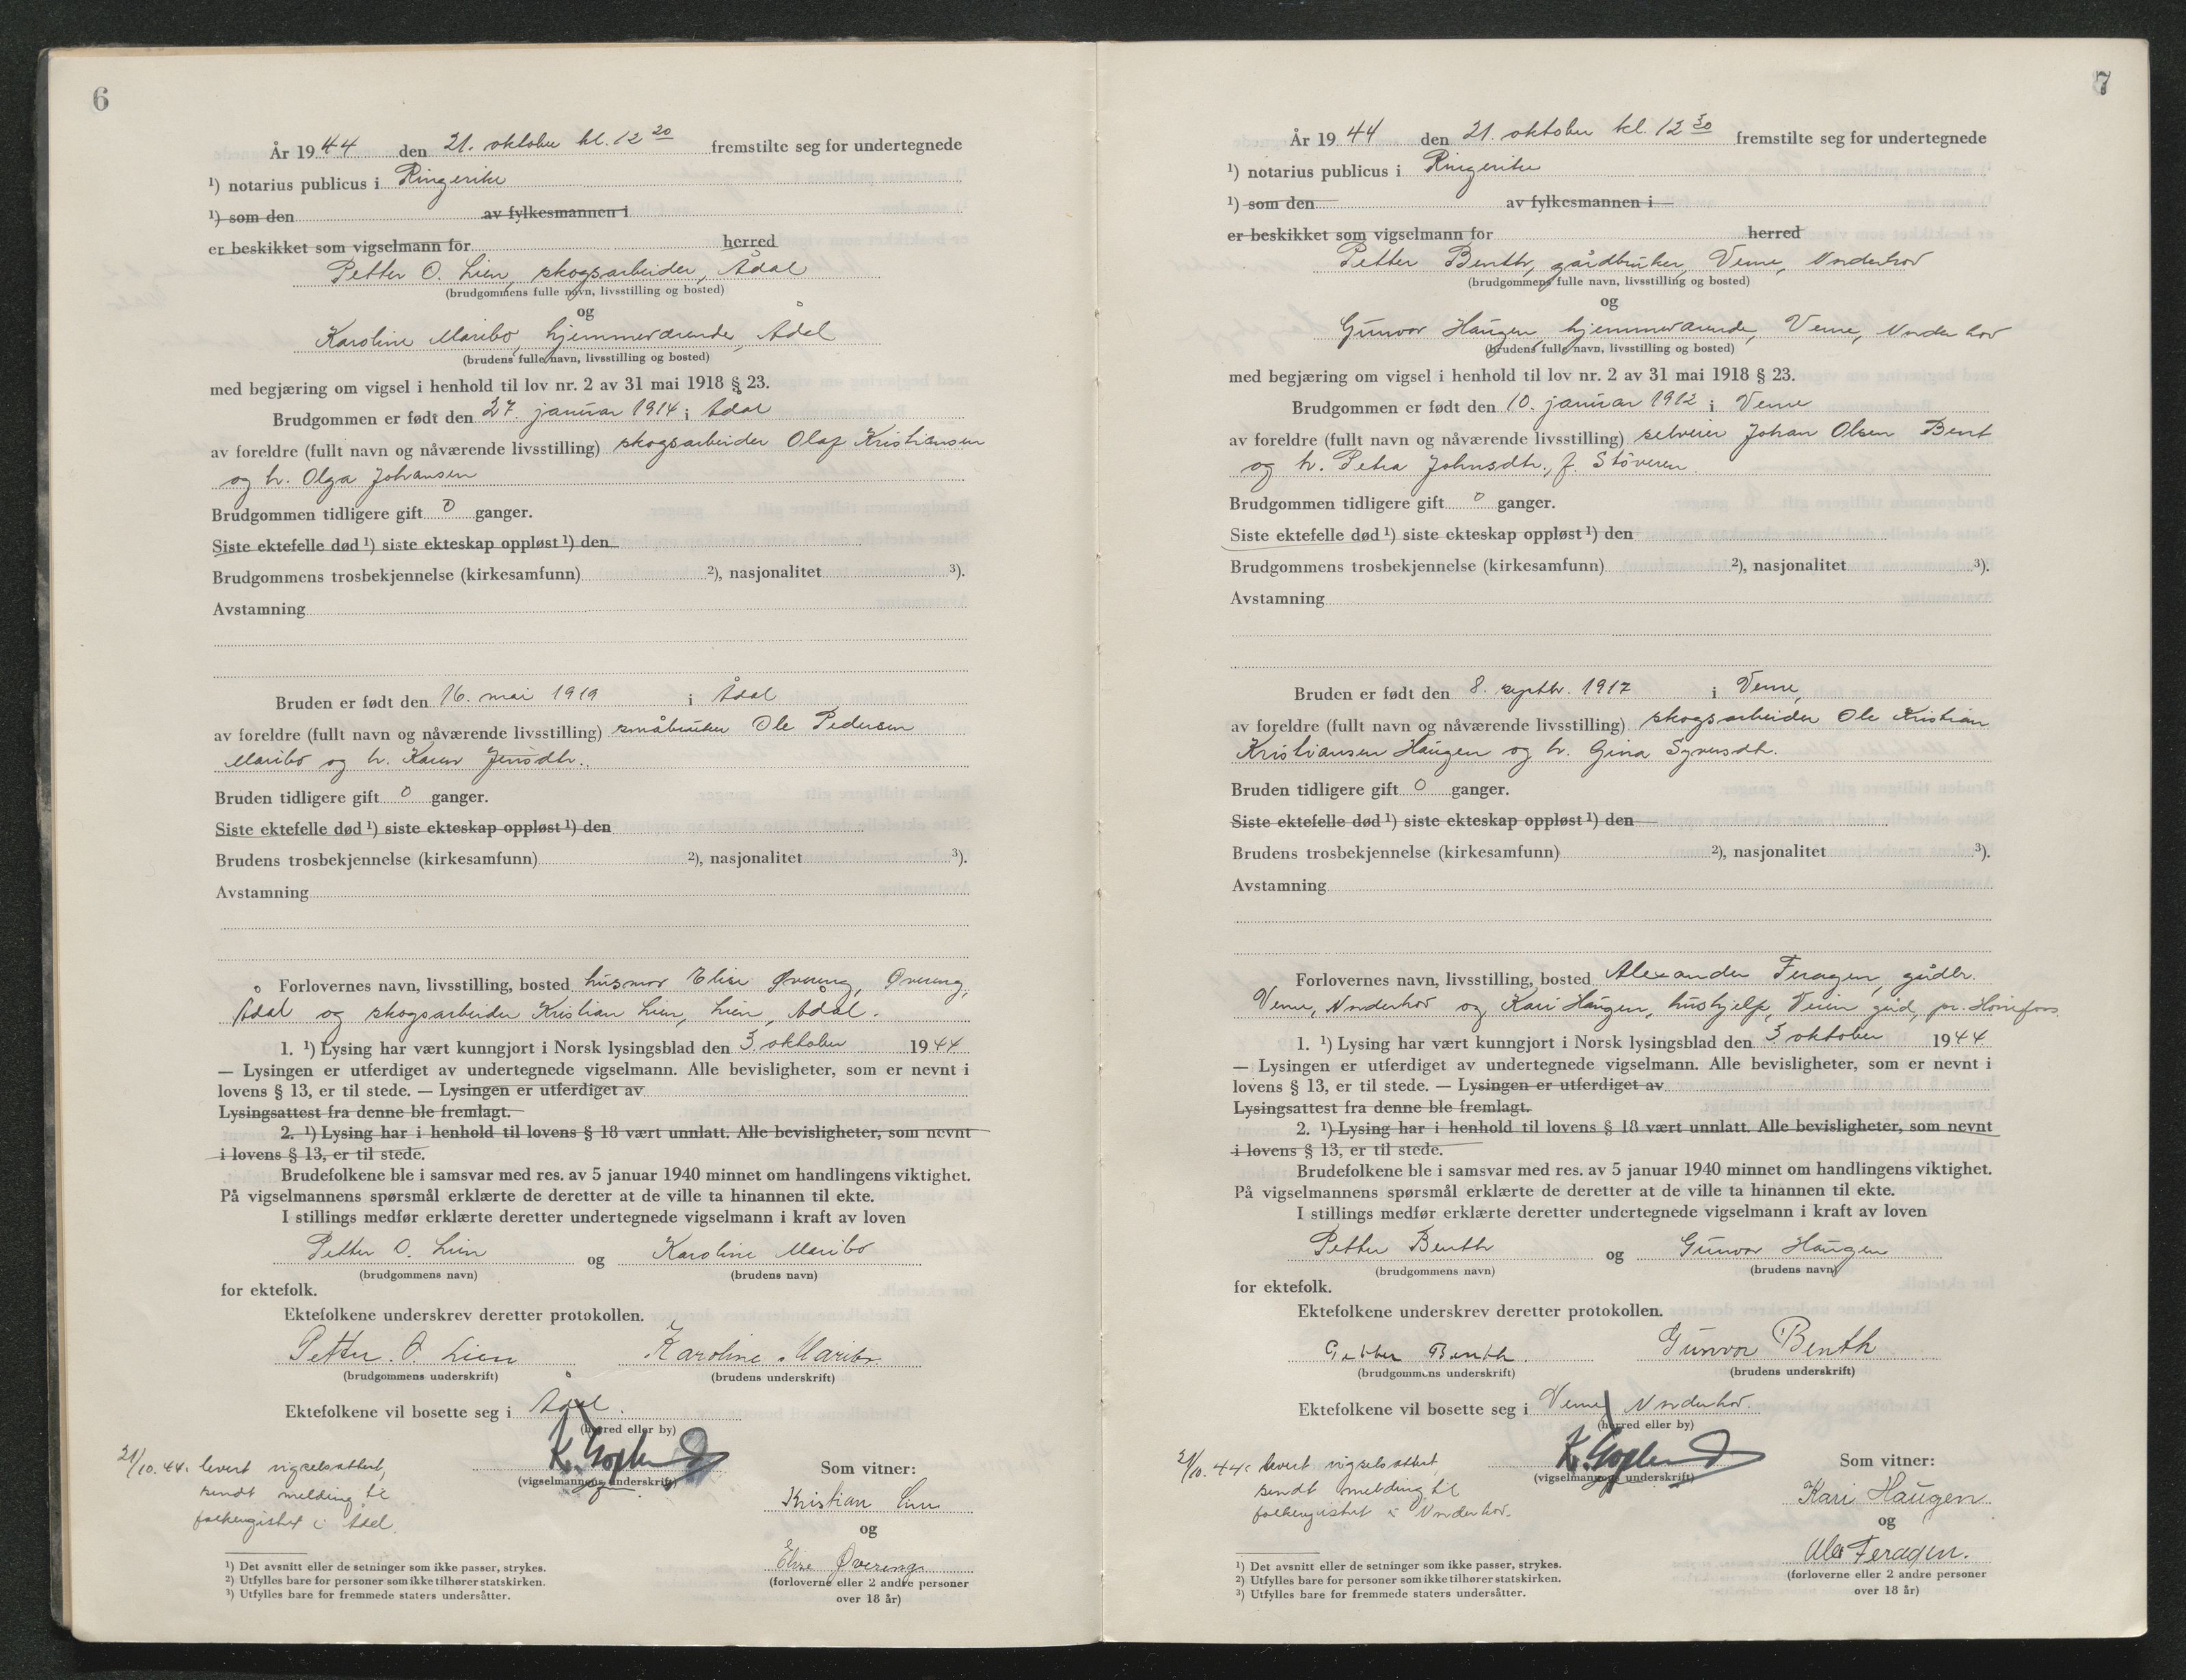 6
År 1944 den 21. oktober kl. 12 20 fremstilte seg for undertegnede
¹) notarius publicus i Ringerike
¹) som den av fylkesmannen i
er beskikket som vigselmann for herred
Petter O. Lien, skogsarbeider, Ådal
(brudgommens fulle navn, livsstilling og bosted)
og
Karoline Maribo, hjemmeværende, Ådal
(brudens fulle navn, livsstilling og bosted)
med begjæring om vigsel i henhold til lov nr. 2 av 31 mai 1918 § 23.
Brudgommen er født den 27. januar 1914 i Ådal
av foreldre (fullt navn og nåværende livsstilling) skogsarbeider Olaf Kristiansen
og h. Olga Johansen
Brudgommen tidligere gift 0 ganger.
Siste ektefelle død ¹) siste ekteskap oppløst ¹) den
Brudgommens trosbekjennelse (kirkesamfunn) ²), nasjonalitet ³).
Avstamning
Bruden er født den 16. mai 1919 i Ådal
av foreldre (fullt navn og nåværende livsstilling) småbruker Ole Pedersen
Maribo og h. Karen Jensdtr.
Bruden tidligere gift 0 ganger.
Siste ektefelle død ¹) siste ekteskap oppløst ¹) den
Brudens trosbekjennelse (kirkesamfunn) ²), nasjonalitet ³).
Avstamning
Forlovernes navn, livsstilling, bosted husmor Elise Øvereng, Øvereng,
Ådal og skogsarbeider Kristian Lien, Lien, Ådal.
1. ¹) Lysing har vært kunngjort i Norsk lysingsblad den 3. oktober 1944
— Lysingen er utferdiget av undertegnede vigselmann. Alle bevisligheter, som er nevnt i
lovens § 13, er til stede. — Lysingen er utferdiget av
Lysingsattest fra denne ble fremlagt.
2. ¹) Lysing har i henhold til lovens § 18 vært unnlatt. Alle bevisligheter, som nevnt
i lovens § 13, er til stede.
Brudefolkene ble i samsvar med res. av 5 januar 1940 minnet om handlingens viktighet.
På vigselmannens spørsmål erklærte de deretter at de ville ta hinannen til ekte.
I stillings medfør erklærte deretter undertegnede vigselmann i kraft av loven
Petter O. Lien og Karoline Maribo
(brudgommens navn) (brudens navn)
for ektefolk.
Ektefolkene underskrev deretter protokollen.
Petter. O. Lien Karoline Maribo
(brudgommens underskrift) (brudens underskrift)
Ektefolkene vil bosette seg i Ådal.
(herred eller by)
21/10.44. levert vigselsattest,
sendt melding til
folkeregistret i Ådal.
(vigselmannens underskrift)
Som vitner:
Kristian Lien
og
Elise Øvereng
(forloverne eller 2 andre personer
over 18 år)
¹) Det avsnitt eller de setninger som ikke passer, strykes.
²) Utfylles bare for personer som ikke tilhører statskirken.
³) Utfylles bare for fremmede staters undersåtter.
7
År 1944 den 21. oktober kl. 12 30 fremstilte seg for undertegnede
¹) notarius publicus i Ringerike
¹) som den av fylkesmannen i
er beskikket som vigselmann for herred
Petter Benth, gårdbruker, Veme, Norderhov
(brudgommens fulle navn, livsstilling og bosted)
og
Gunvor Haugen, hjemmeværende, Veme, Norderhov
(brudens fulle navn, livsstilling og bosted)
med begjæring om vigsel i henhold til lov nr. 2 av 31 mai 1918 § 23.
Brudgommen er født den 10. januar 1912 i Veme
av foreldre (fullt navn og nåværende livsstilling) selveier Johan Olsen Bent
og h. Petra Johnsdtr., f. Støveren.
Brudgommen tidligere gift 0 ganger.
Siste ektefelle død ¹) siste ekteskap oppløst ¹) den
Brudgommens trosbekjennelse (kirkesamfunn) ²), nasjonalitet ³).
Avstamning
Bruden er født den 8. septbr. 1917 i Veme,
av foreldre (fullt navn og nåværende livsstilling) skogsarbeider Ole Kristian
Kristiansen Haugen og h. Gina Syversdtr.
Bruden tidligere gift 0 ganger.
Siste ektefelle død ¹) siste ekteskap oppløst ¹) den
Brudens trosbekjennelse (kirkesamfunn) ²), nasjonalitet ³).
Avstamning
Forlovernes navn, livsstilling, bosted Alexander Feragen, gårdbr.
Veme, Norderhov og Kari Haugen, hushjelp, Veien gård, pr. Hønefoss.
1. ¹) Lysing har vært kunngjort i Norsk lysingsblad den 3 oktober 1944
— Lysingen er utferdiget av undertegnede vigselmann. Alle bevisligheter, som er nevnt i
lovens § 13, er til stede. — Lysingen er utferdiget av
Lysingsattest fra denne ble fremlagt.
2. ¹) Lysing har i henhold til lovens § 18 vært unnlatt. Alle bevisligheter, som nevnt
i lovens § 13, er til stede.
Brudefolkene ble i samsvar med res. av 5 januar 1940 minnet om handlingens viktighet.
På vigselmannens spørsmål erklærte de deretter at de ville ta hinannen til ekte.
I stillings medfør erklærte deretter undertegnede vigselmann i kraft av loven
Petter Benth og Gunvor Haugen
(brudgommens navn) (brudens navn)
for ektefolk.
Ektefolkene underskrev deretter protokollen.
Petter Benth. Gunvor Benth
(brudgommens underskrift) (brudens underskrift)
Ektefolkene vil bosette seg i Veme, Norderhov.
(herred eller by)
21/10.44. levert vigselsattest
sendt melding til
folkeregistret i Norderhov.
(vigselmannens underskrift)
Som vitner:
Kari Haugen
og
Alex Feragen.
(forloverne eller 2 andre personer
over 18 år)
¹) Det avsnitt eller de setninger som ikke passer, strykes.
²) Utfylles bare for personer som ikke tilhører statskirken.
³) Utfylles bare for fremmede staters undersåtter.